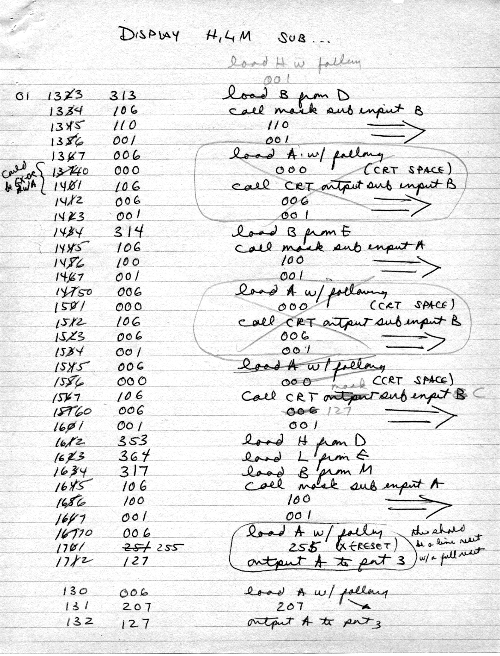 DISPLAY H, L M SUB ...
load H w/ following
001
01 133 313 load B from D
134 106 call mask sub input B
135 110 110
136 001 001
137 006 load A w/ following
140 000 000 (CRT SPACE)
141 106 call CRT output sub input B
142 006 006
143 001 001
144 314 load B from E
145 106 call mask sub input A
146 100 100
147 001 001
150 006 load A w/ following
151 000 000 (CRT SPACE)
152 106 call CRT output sub input B
153 006 006
154 001 001
155 006 load A w/ following
156 000 000 (CRT SPACE)
157 106 call CRT output mask sub input B C
160 006 006 127
161 001 001
162 353 load H from D
163 364 load L from E
164 317 load B from M
165 106 call mask sub input A
166 100 100
167 001 001
170 006 load A w/ following
171 251 255 255 (X-RESET)
172 127 output A to port 3
this should be a line reset w/ a full reset
130 006 load A w/ following
131 207 207
132 127 output A to port 3